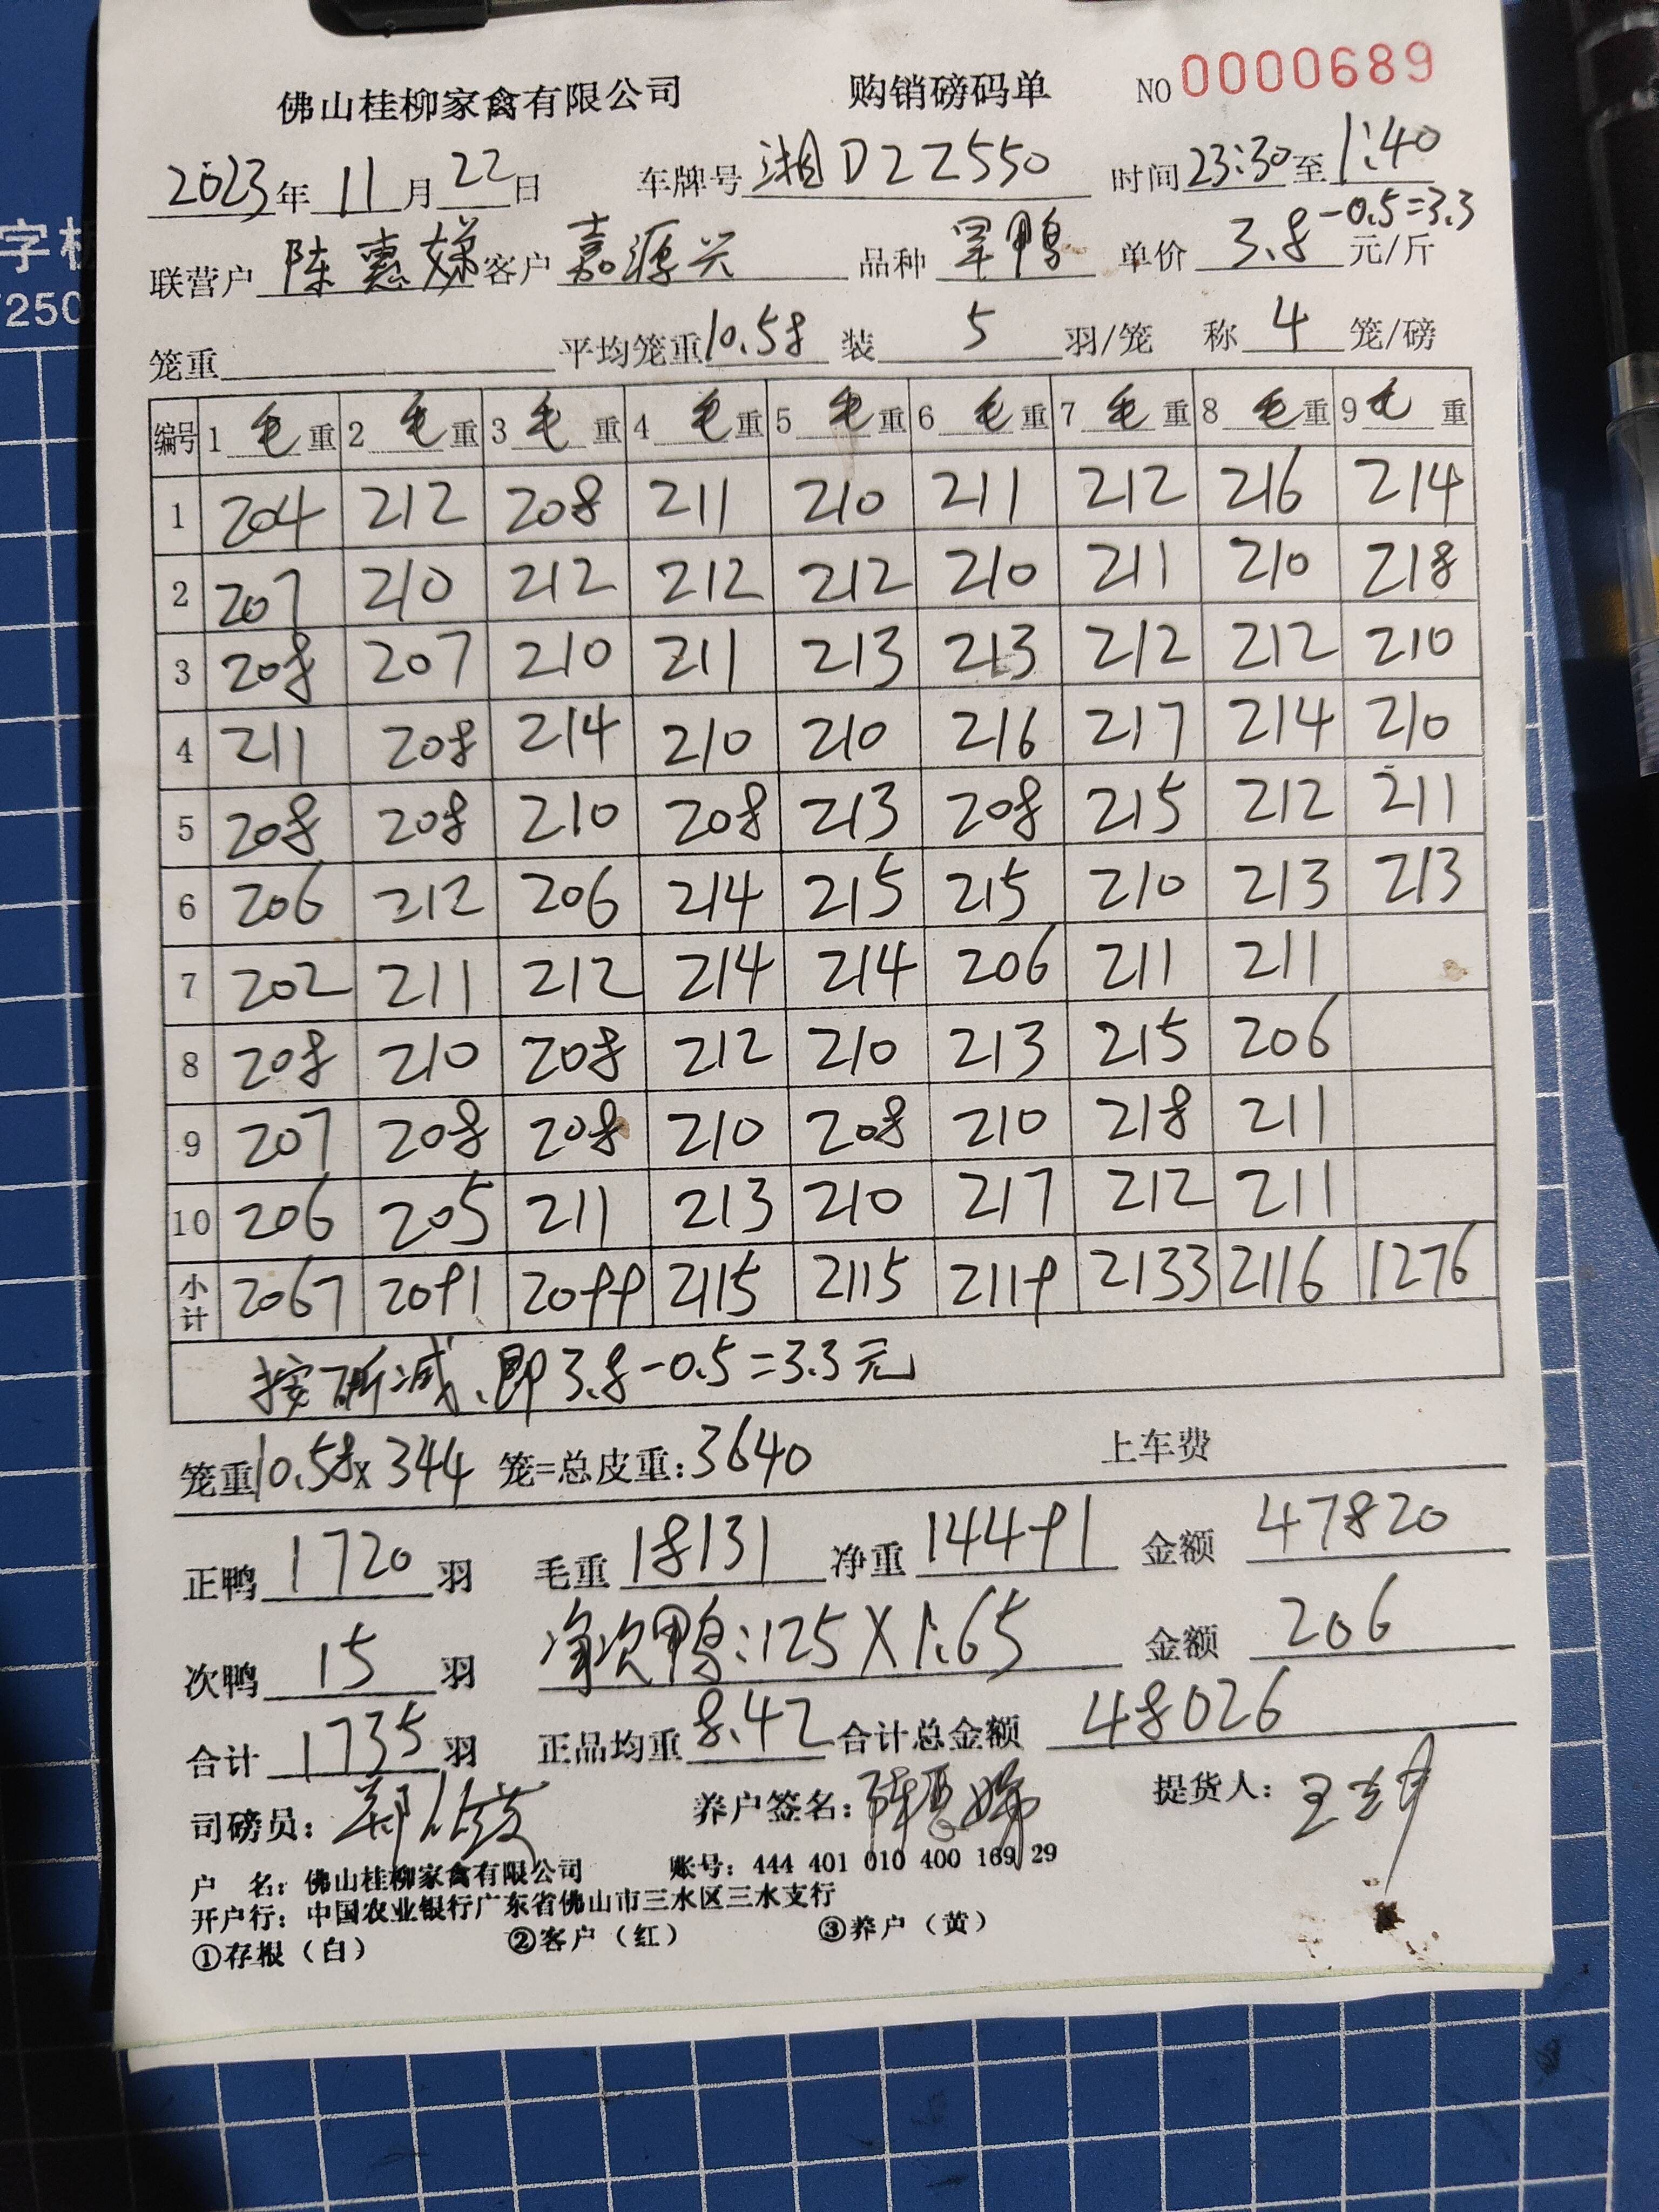 佛山桂柳家禽有限公司 购销磅码单 NO 0000689
2023年 11月 22日 车牌号 湘D2Z550 时间 23:30 至 1:40
联营户 陈惠娣 客户 嘉源兴 品种 旱鸭 单价 3.8 -0.5=3.3 元/斤
笼重 平均笼重 10.58 装 5 羽/笼 称 4 笼/磅
编号 1 毛重 2 毛重 3 毛重 4 毛重 5 毛重 6 毛重 7 毛重 8 毛重 9 毛重
1 204 212 208 211 210 211 212 216 214
2 207 210 212 212 212 210 211 210 218
3 208 207 210 211 213 213 212 212 210
4 211 208 214 210 210 216 217 214 210
5 208 208 210 208 213 208 215 212 211
6 206 212 206 214 215 215 210 213 213
7 202 211 212 214 214 206 211 211
8 208 210 208 212 210 213 215 206
9 207 208 208 210 208 210 218 211
10 206 205 211 213 210 217 212 211
小计 2067 2091 2099 2115 2115 2119 2133 2116 1276
按斫减、即3.8-0.5=3.3元
笼重10.58x 344 笼=总皮重:3640 上车费
正鸭 1720 羽 毛重 18131 净重 14491 金额 47820
次鸭 15 羽 净次鸭:125X1.65 金额 206
合计 1735 羽 正品均重 8.42 合计总金额 48026
司磅员: 养户签名:陈惠娣 提货人:
户 名:佛山桂柳家禽有限公司 账号:444 401 010 400 169 29
开户行:中国农业银行广东省佛山市三水区三水支行
①存根(白) ②客户(红) ③养户(黄)
字
250